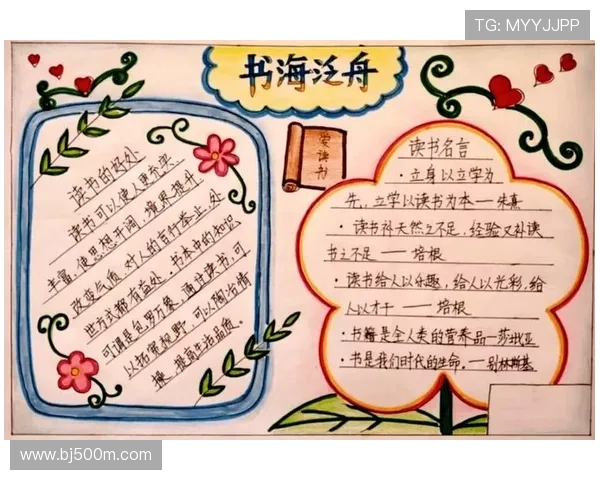 TG: MYYJJPP
书海泛舟
爱读书
读书的好处
读书可以使人更充实、
丰富,使思想开阔、境界提升,
改变气质,对人的言行举止、处
世方式都有益处。书本中的知识
可谓是包罗万象,通过读书,可
以拓宽视野,可以陶冶情
操,提高生活品质。
读书名言
·立身以立学为
先,立学以读书为本——朱熹
·读书补天然之不足,经验又补读
书之不足——培根
·读书给人以乐趣,给人以光彩,给
人以才干——培根
·书籍是全人类的营养品—莎士比亚
·书是我们时代的生命。——别林斯基
www.bj500m.com